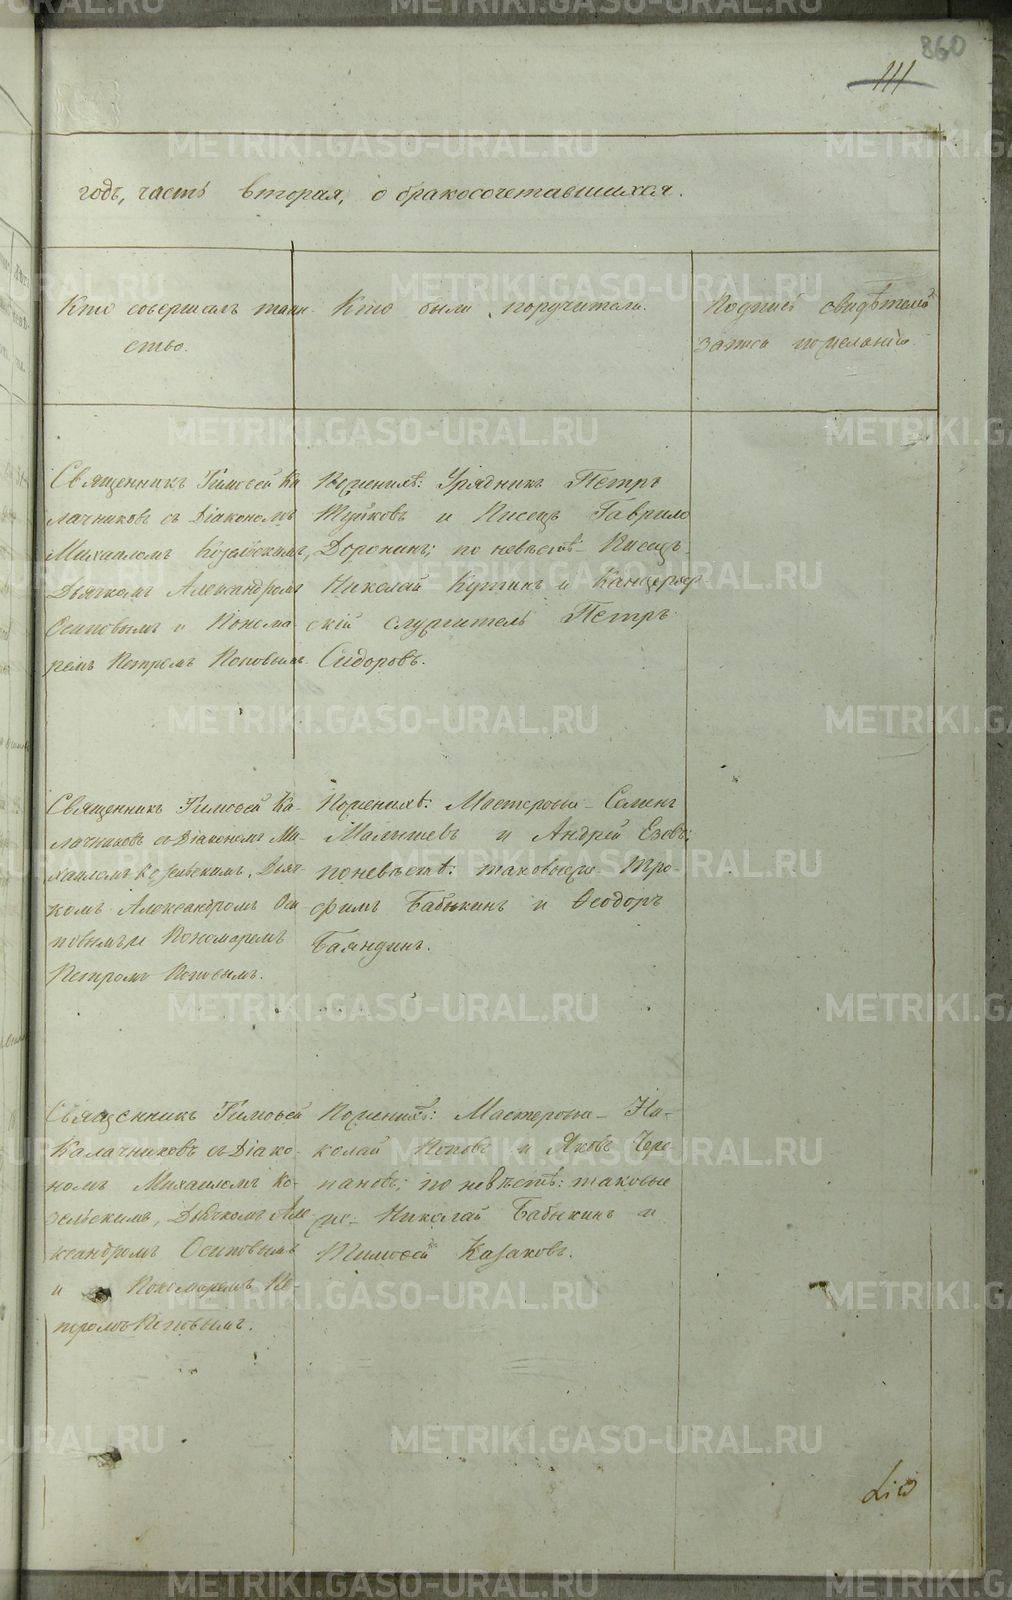 860
111
годъ, часть вторая, о бракосочетавшихся.
Кто совершалъ таин-
ство.
Кто были поручители.
Подписи свидѣтелей
записи по желанію
Священникъ Тимоѳей Ка
лачниковъ съ Діакономъ
Михаиломъ Козельскимъ,
Дьячкомъ Александромъ
Осиповымъ и Понома-
ремъ Петромъ Поповымъ.
По женихѣ: Урядникъ Петръ
и Писецъ Гаврило
Доронинъ; по невѣстѣ Писецъ
Николай Кутинъ и Канцеляр
скій служитель Петръ
Сидоровъ.
Священникъ Тимоѳей Ка-
лачниковъ съ Діакономъ Ми-
хаиломъ Козельскимъ, Дьяч-
комъ Александромъ Оси
повымъ и Пономаремъ
Петромъ Поповымъ.
По женихѣ: Мастеровые Семенъ
Малышевъ и Андрей
по невѣстѣ: таковыеже Тро-
фимъ Бабыкинъ и Ѳеодоръ
Баяндинъ.
Священникъ Тимоѳей
Калачниковъ съ Діако-
номъ Михаиломъ Ко-
зельскимъ, Дьячкомъ Але
ксандромъ Осиповымъ
и Пономаремъ Пе-
тромъ Поповымъ.
По женихѣ: Мастеровые Ни-
колай Поповъ и Яковъ Чере
пановъ; по невѣстѣ: таковые
же Николай Бабыкинъ и
Тимоѳей Казаковъ.
METRIKI.GASO-URAL.RU